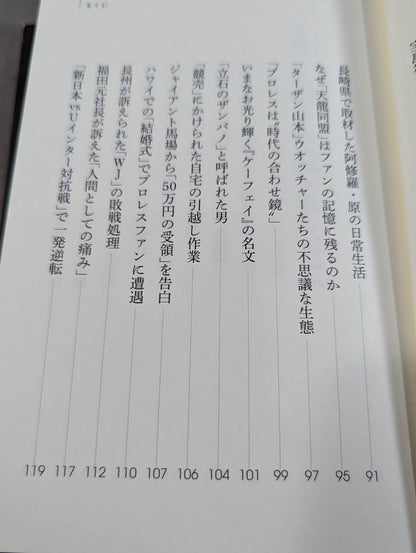 もくじ
長崎県で取材した阿修羅・原の日常生活 91
なぜ「天龍同盟」はファンの記憶に残るのか 95
「ターザン山本」ウオッチャーたちの不思議な生態 97
「プロレスは“時代の合わせ鏡”」 99
いまなお光り輝く『ケーフェイ』の名文 101
「立石のザンパノ」と呼ばれた男 104
「競売」にかけられた自宅の引越し作業 106
ジャイアント馬場から「50万円の受領」を告白 107
ハワイでの「結婚式」でプロレスファンに遭遇 110
長州が訴えられた「WJ」の敗戦処理 112
福田元社長が訴えた「人間としての痛み」 117
「新日本vsUインター対抗戦」で一発逆転 119